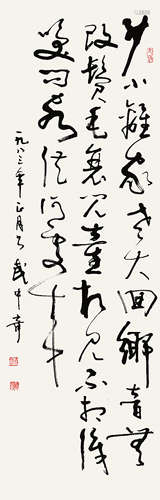 少小離家老大回鄉音無
改鬢毛衰兒童相見不相識
笑问客從何處來
一九八三年正月 武中奇